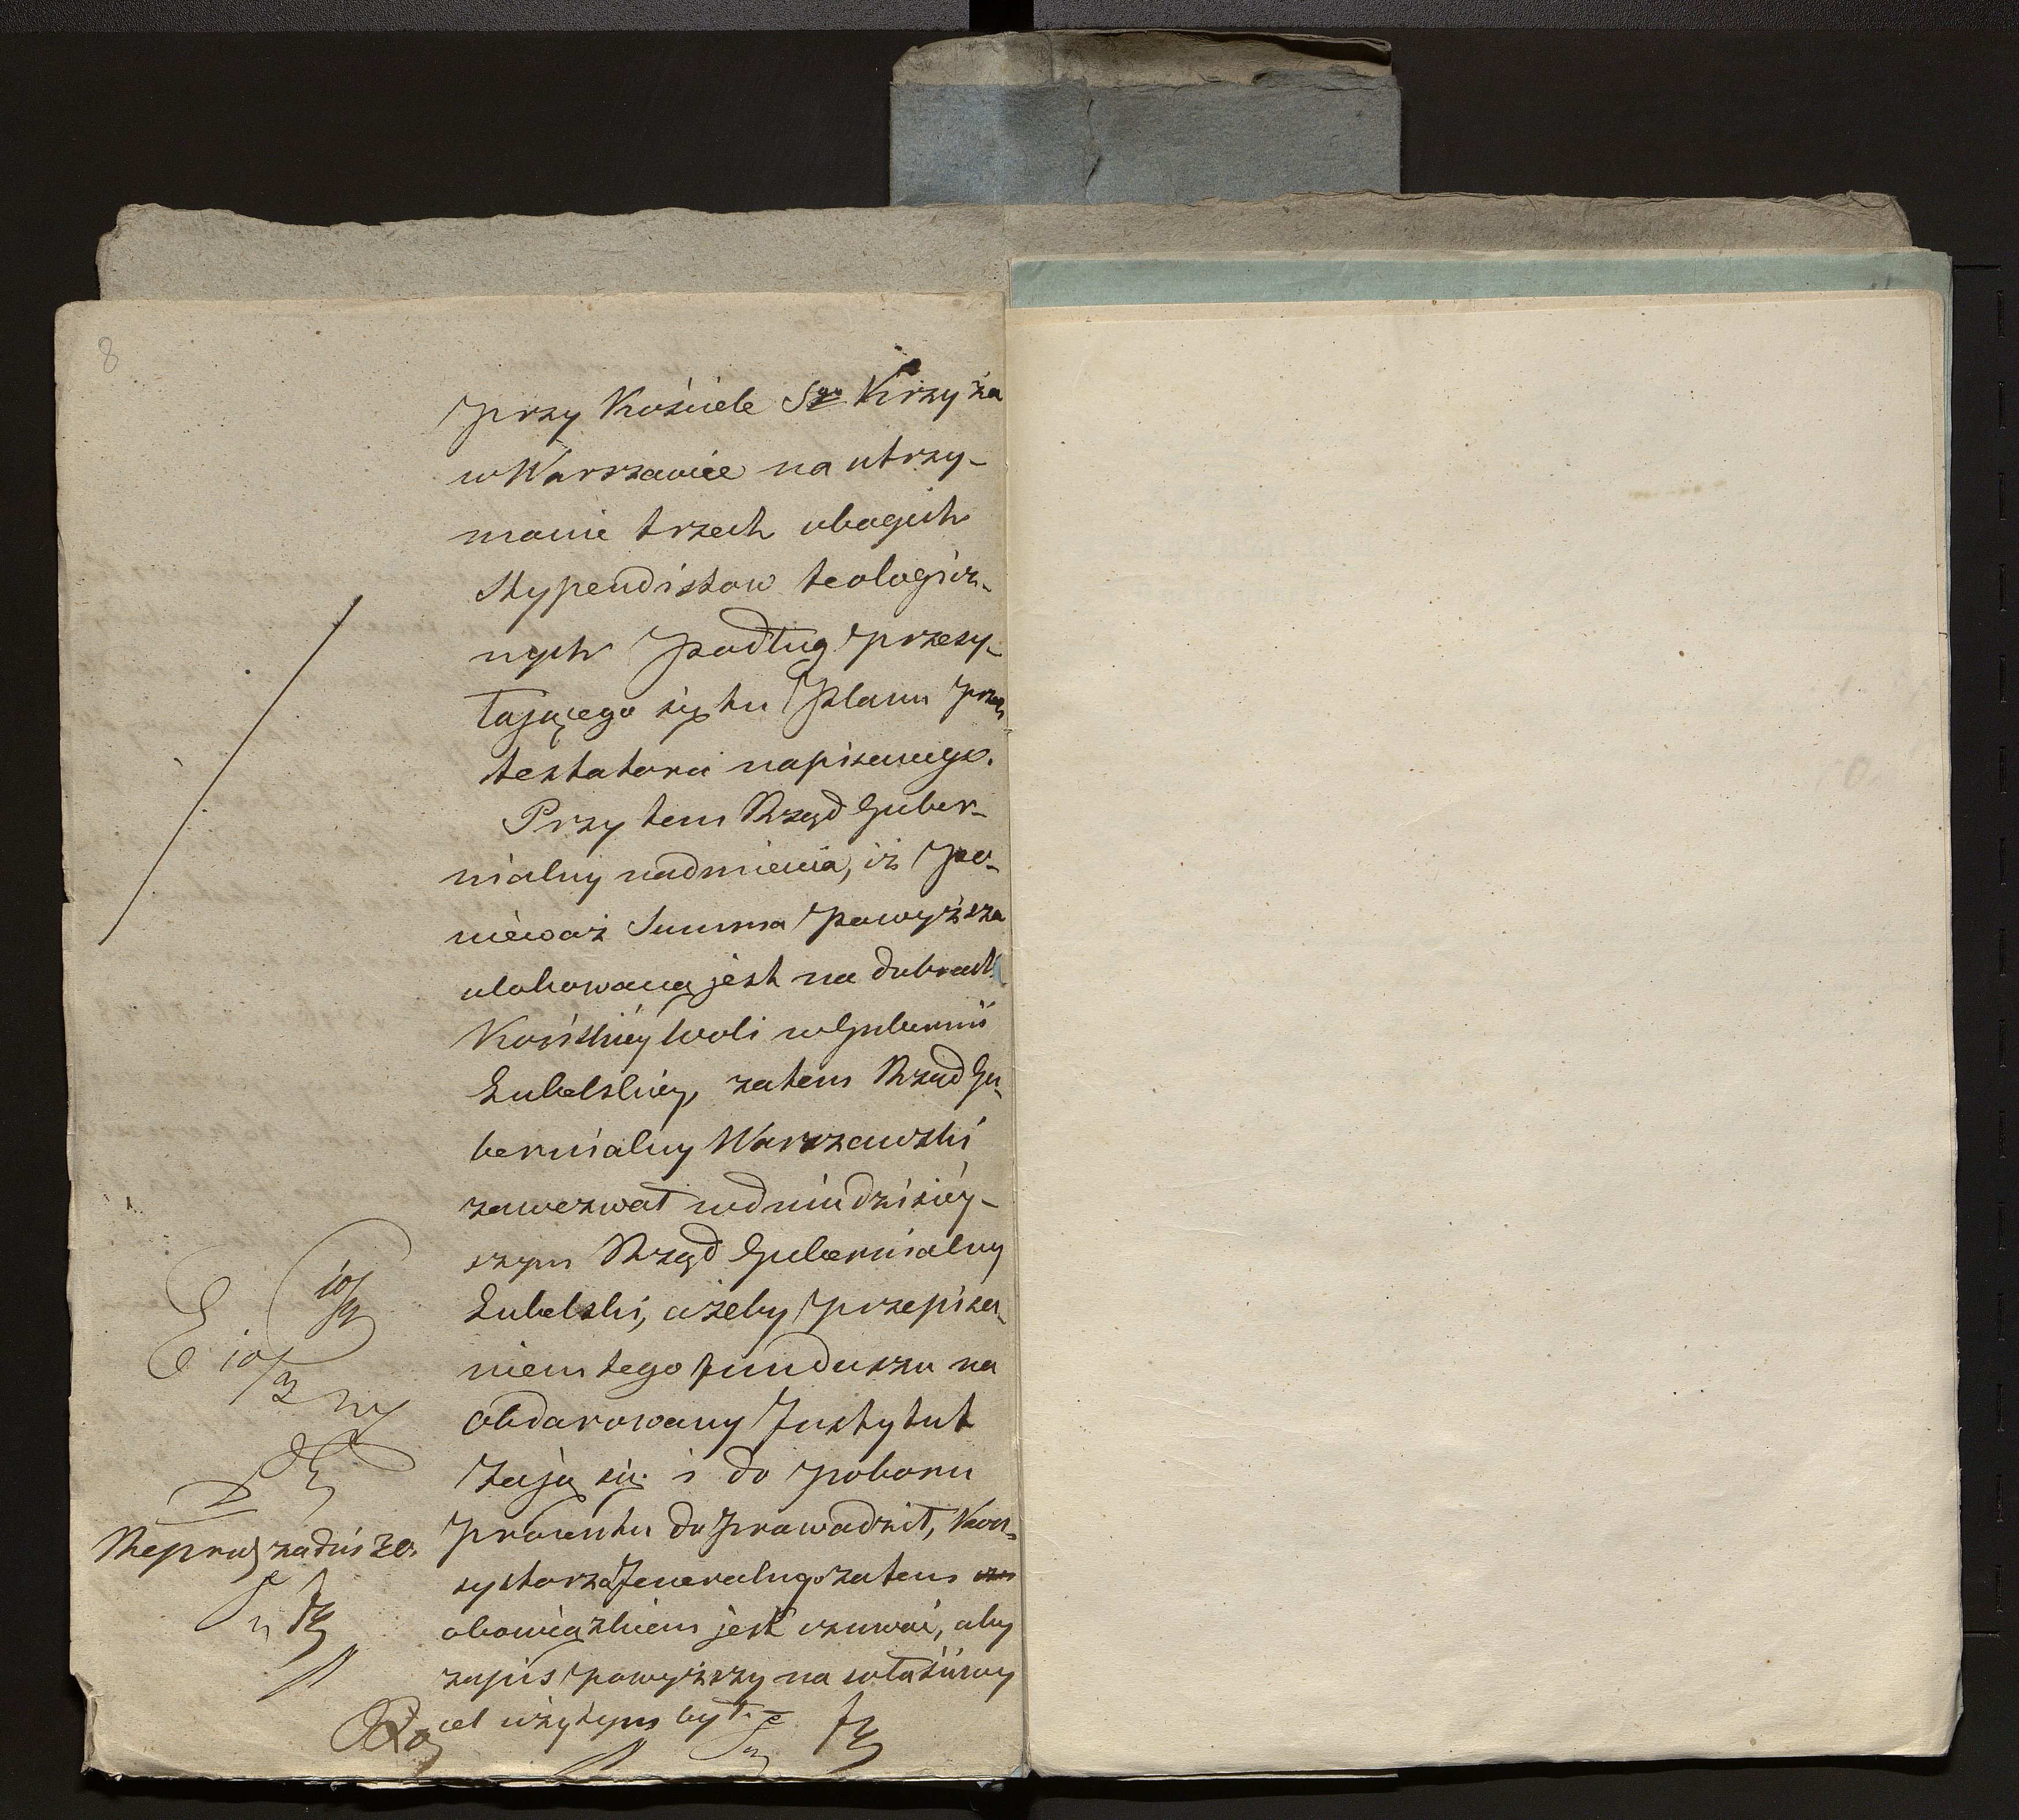 8
przy Kościele Sgo Krzyża
w Warszawie na utrzy-
manie trzech ubogich
Stypendistow teologicz-
nych podług przesy-
łającego się tu Planu przez
testatora napisanego.
Przytem Rząd Guber-
nialny nadmienia, iż po-
nieważ Summa powyższa
ulokowaną jest na dobrach
Końskiéy Woli w Gubernii
Lubelskiey, zatem Rząd Gu-
bernialny Warszawski
zawezwał w dniu dzisiéy-
szym Rząd Gubernialny
Lubelski, ażeby przepisa-
niem tego funduszu na
obdarowany Instytut
zajął się i do poboru
procentu doprowadził, Kon-
systorza Jeneralnego zatem
obowiązkiem jest czuwać, aby
zapis powyższy na właściwy
cel użytym był.
E 10/3
10/3